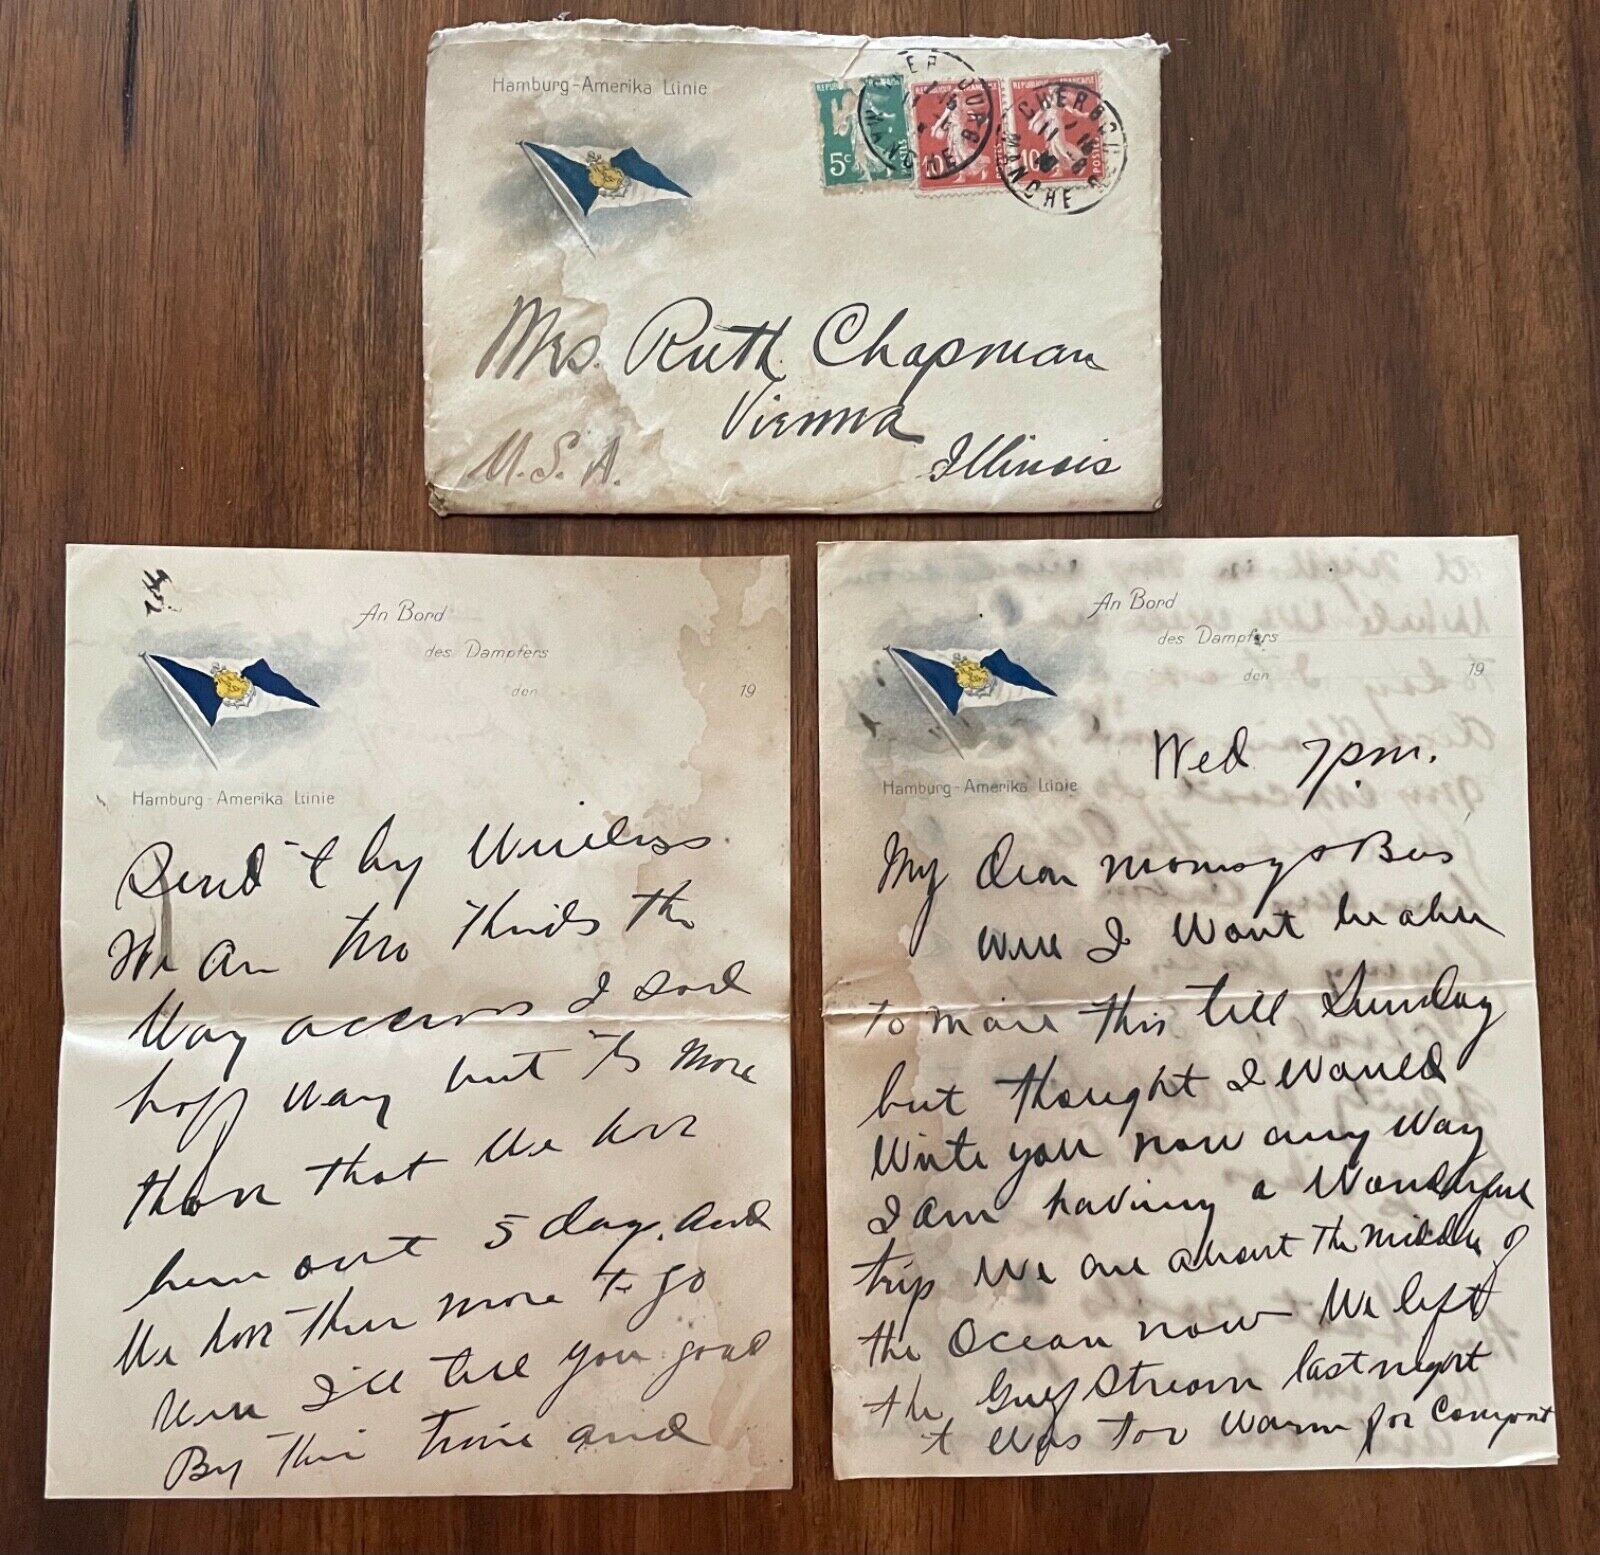 Hamburg-Amerika Linie
REPUBLIQUE FRANÇAISE
5c
POSTES
REPUBLIQUE FRANÇAISE
10c
POSTES
REPUBLIQUE FRANÇAISE
10c
POSTES
CHERBOURG
MANCHE
CHERBOURG
MANCHE
Mrs. Ruth Chapman
Vienna
Illinois
U.S.A.
An Bord
des Dampfers
den 19
Hamburg-Amerika Linie
Send t by Wireless
We are two thirds the
Way across I said
half way but its more
than that We have
been out 5 days. and
We have three more to go
Well I'll tell you good
By this time and
An Bord
des Dampfers
den 19
Hamburg-Amerika Linie
Wed 7pm.
My dear Momsy &
Well I Wont be able
to mail this till Sunday
but thought I Would
Write you now any Way
I am having a Wonderful
trip We are about the middle of
the Ocean now We left
the Gulf Stream last night
t Was too Warm for Comfort